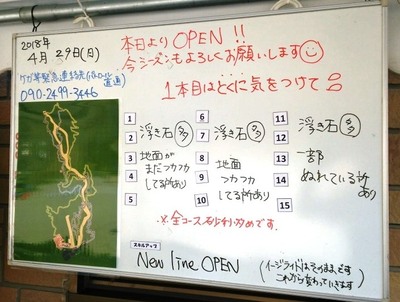 2018年
4月29日(日)
本日より OPEN!!
今シーズンもよろしくお願いします
ケガ等緊急連絡先(パトロール直通)
090-2499-3446
1本目はとくに気をつけて
1
2
3
4
5
浮き石 多
地面が
まだフカフカ
してる所あり
6
7
8
9
10
浮き石 多
地面
フカフカ
してる所あり
11
12
13
14
15
浮き石 多
一部
ぬれている所
あり
※全コース砂利多めです。
スキルアップ
New line OPEN
(イージーライドはそのままです
これから変わっていきます)